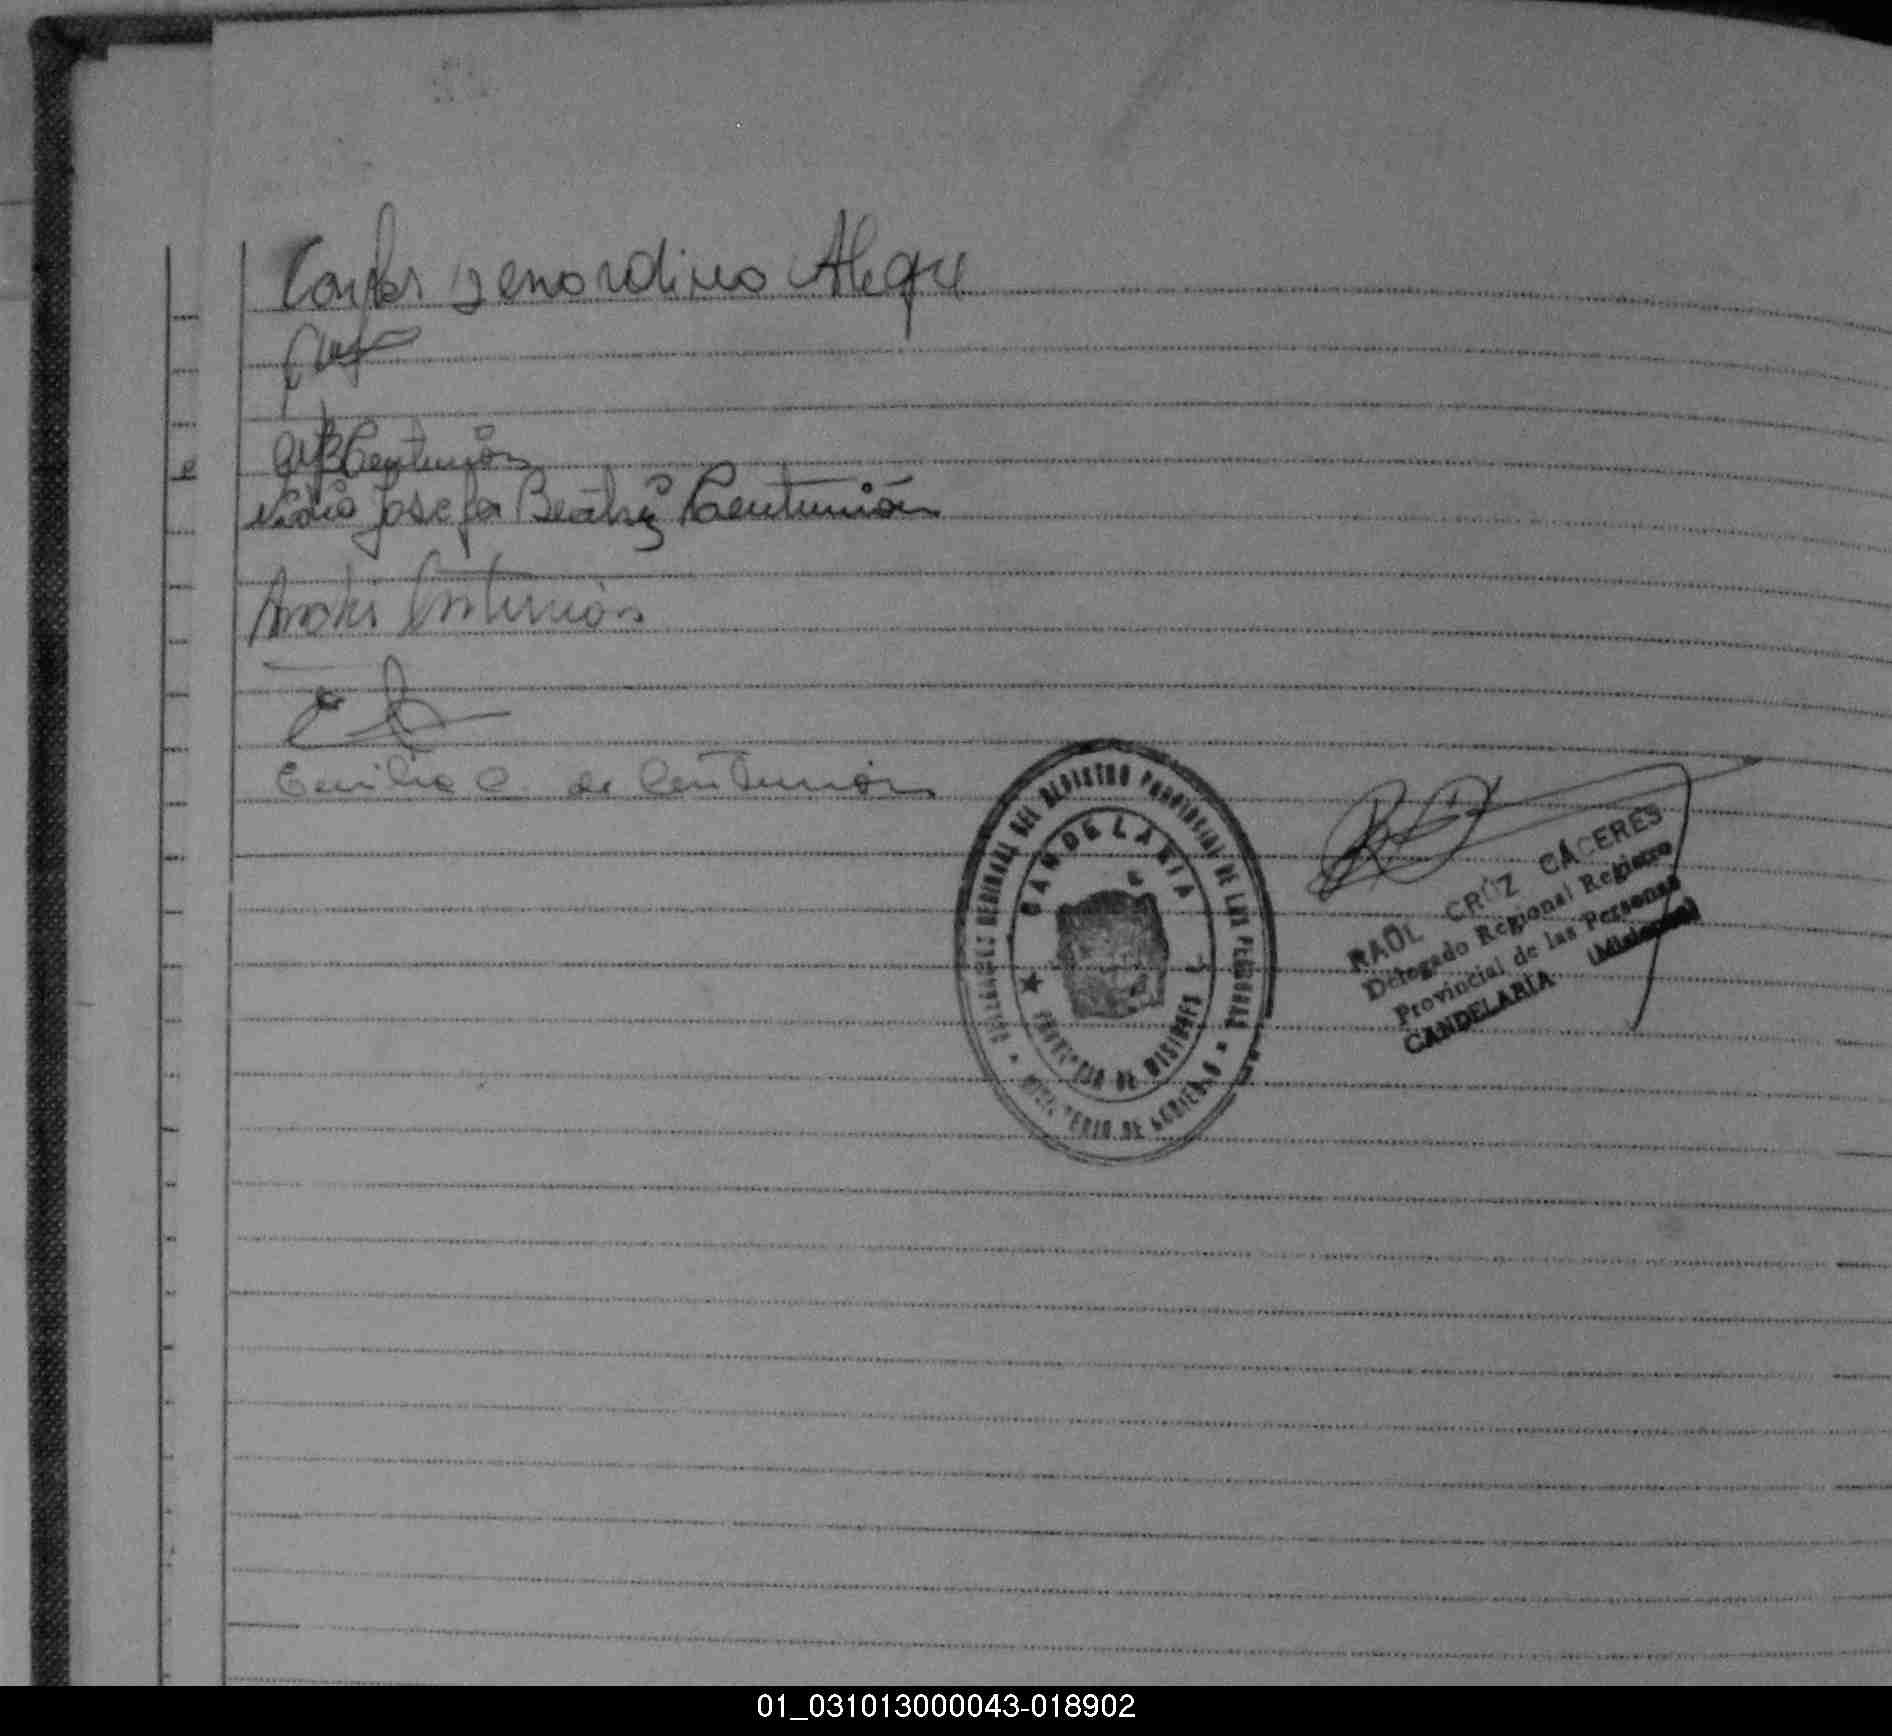 Carlos Genordino Alegre
Centurión
Nidia Josefa Beatriz Centurión
Andrés Centurión
Emilia C. de Centurión
DELEGACIÓN REGIONAL DEL REGISTRO PROVINCIAL DE LAS PERSONAS
CANDELARIA
PROVINCIA DE MISIONES
MINISTERIO DE GOBIERNO
RAÚL CRUZ CÁCERES
Delegado Regional Registro
Provincial de las Personas
CANDELARIA (Misiones)
01_031013000043-018902